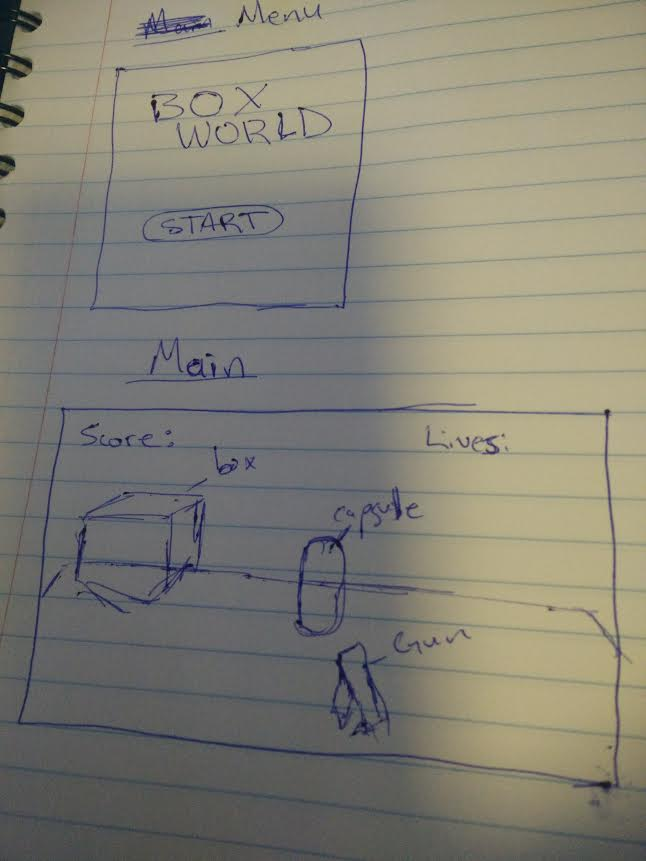 Menu
BOX
WORLD
START
Main
Score:
Lives:
box
capsule
Gun